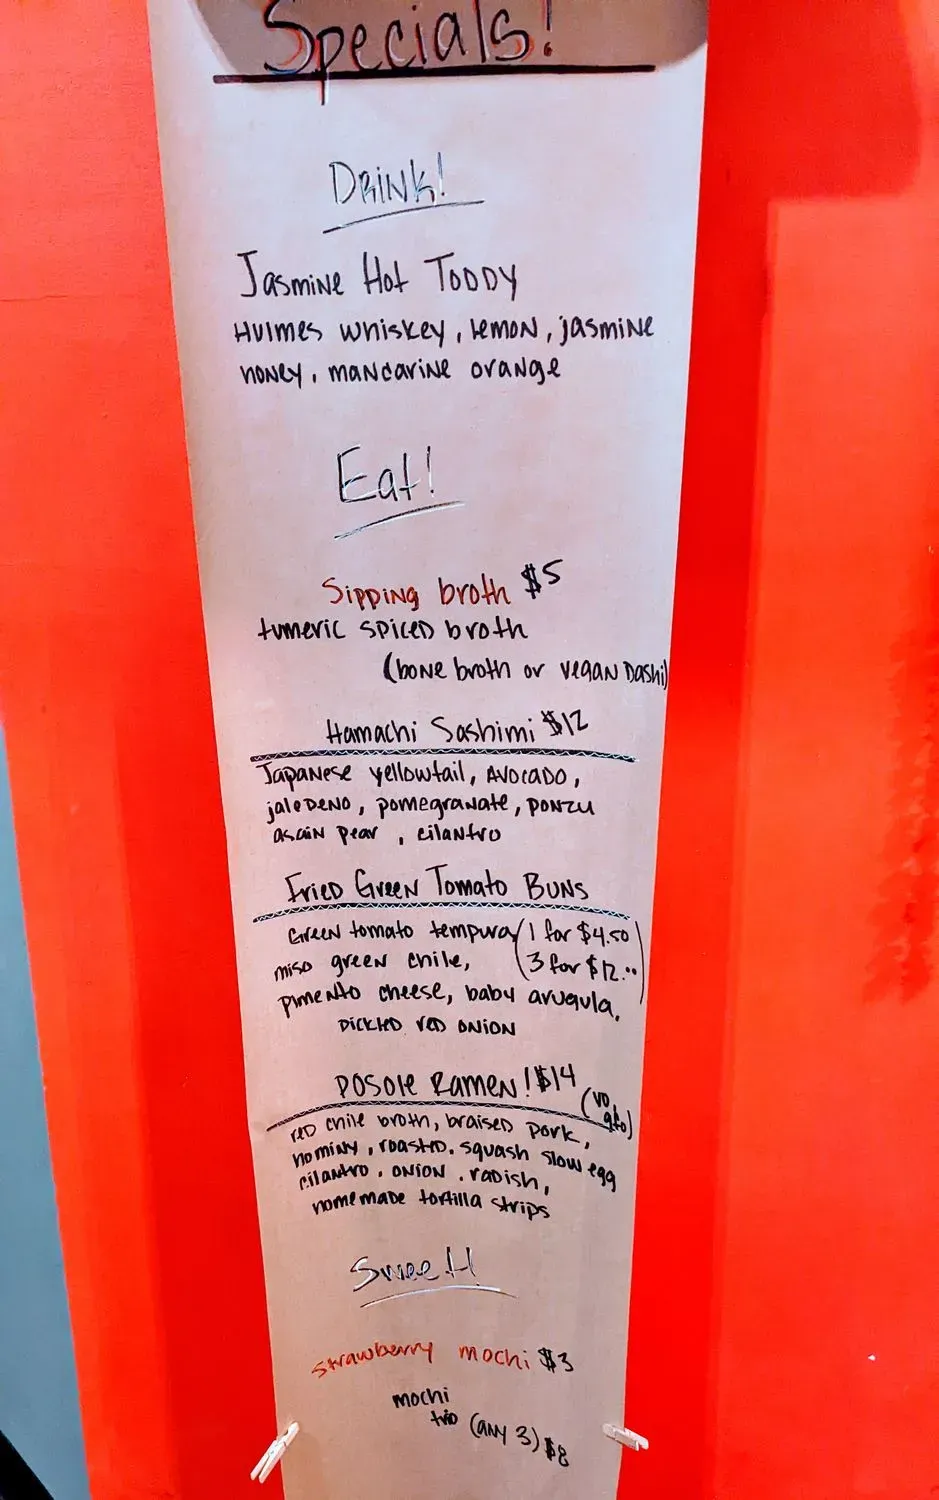 Specials!
Drink!
Jasmine Hot Toddy
Hulmes whiskey, lemon, jasmine
honey, mandarine orange
Eat!
Sipping broth $5
tumeric spiced broth
(bone broth or vegan Dashi)
Hamachi Sashimi $12
Japanese yellowtail, avocado,
jalepeno, pomegranate, ponzu
asain pear, cilantro
Fried Green Tomato Buns
Green tomato tempura (1 for $4.50
miso green chile, 3 for $12..)
pimento cheese, baby arugula.
pickled red onion
Posole Ramen! $14
(vo, gfo)
red chile broth, braised pork,
hominy, roasted. squash slow egg
cilantro. onion. radish,
homemade tortilla strips
Sweet!
strawberry mochi $3
mochi
trio (any 3) $8